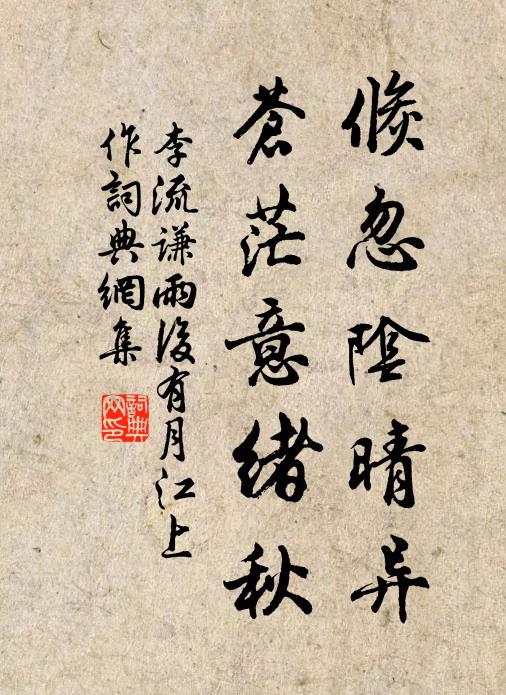 倏忽陰晴异
蒼茫意緒秋
李流謙雨後有月江上
作詞典網集
詞典
网印